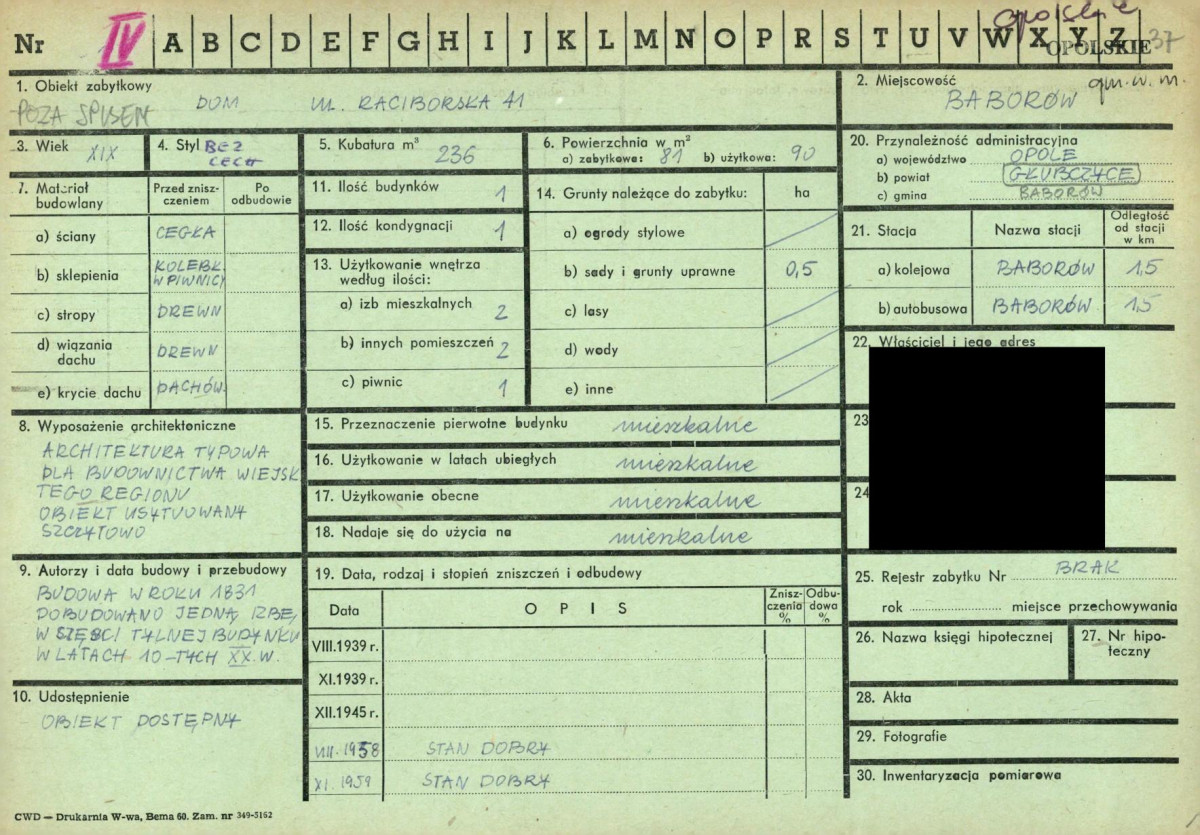 opolskie
Nr IV A B C D E F G H I J K L M N O P R S T U V W X Y Z
OPOLSKIE 37
1. Obiekt zabytkowy
POZA SPISEM DOM UL. RACIBORSKA 41
2. Miejscowość
gm. w. m.
BABORÓW
3. Wiek XIX
4. Styl BEZ
CECH
5. Kubatura m³ 236
6. Powierzchnia w m²
a) zabytkowa: 81 b) użytkowa: 90
20. Przynależność administracyjna
a) województwo OPOLE
b) powiat GŁUBCZYCE
c) gmina BABORÓW
7. Materiał budowlany
Przed zniszczeniem
Po odbudowie
a) ściany CEGŁA
b) sklepienia KOLEBK.
W PIWNICY
c) stropy DREWN
d) wiązania dachu DREWN
e) krycie dachu DACHÓW.
11. Ilość budynków 1
12. Ilość kondygnacji 1
13. Użytkowanie wnętrza
według ilości:
a) izb mieszkalnych 2
b) innych pomieszczeń 2
c) piwnic 1
14. Grunty należące do zabytku: ha
a) ogrody stylowe
b) sady i grunty uprawne 0,5
c) lasy
d) wody
e) inne
21. Stacja Nazwa stacji Odległość od stacji w km
a) kolejowa BABORÓW 1,5
b) autobusowa BABORÓW 1,5
22. Właściciel i jego adres
23
24
8. Wyposażenie architektoniczne
ARCHITEKTURA TYPOWA
DLA BUDOWNICTWA WIEJSK
TEGO REGIONU
OBIEKT USYTUOWANY
SZCZYTOWO
15. Przeznaczenie pierwotne budynku mieszkalne
16. Użytkowanie w latach ubiegłych mieszkalne
17. Użytkowanie obecne mieszkalne
18. Nadaje się do użycia na mieszkalne
9. Autorzy i data budowy i przebudowy
BUDOWA W ROKU 1831
DOBUDOWANO JEDNĄ IZBĘ,
W CZĘŚCI TYLNEJ BUDYNKU
W LATACH 10-TYCH XX. W.
10. Udostępnienie
OBIEKT DOSTĘPNY
19. Data, rodzaj i stopień zniszczeń i odbudowy
Data OPIS Zniszczenia % Odbudowa %
VIII.1939 r.
XI.1939 r.
XII.1945 r.
VIII.1958 STAN DOBRY
XI.1959 STAN DOBRY
25. Rejestr zabytku Nr BRAK
rok miejsce przechowywania
26. Nazwa księgi hipotecznej
27. Nr hipoteczny
28. Akta
29. Fotografie
30. Inwentaryzacja pomiarowa
CWD — Drukarnia W-wa, Bema 60. Zam. nr 349-5162